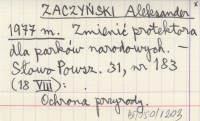 ZACZYŃSKI Aleksander
1977 m. Zmienić protektora
dla parków narodowych. —
Słowo Powsz. 31, nr 183
(18 VIII): .
Ochrona przyrody.